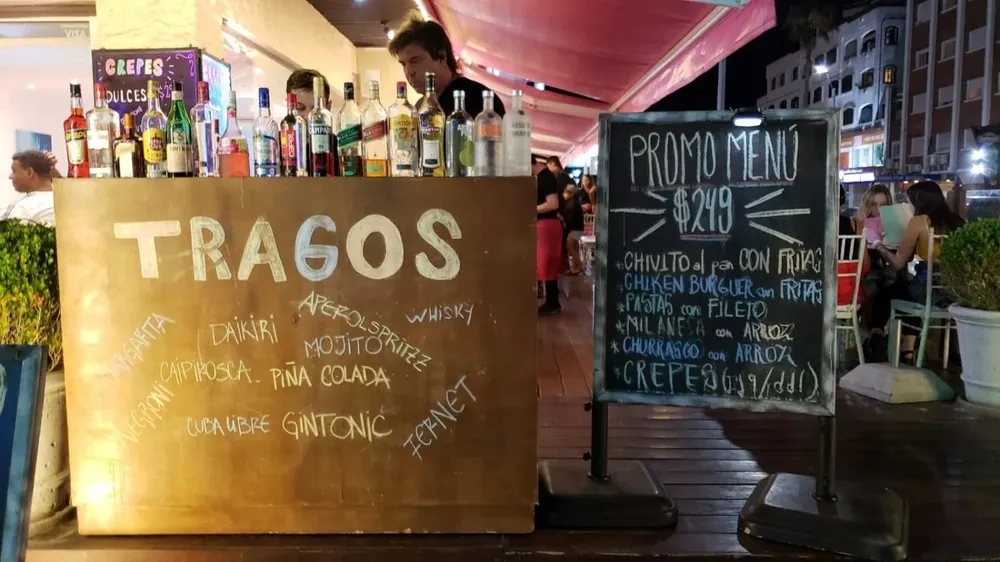 VISA
CREPES
DULCES
TRAGOS
APEROLSPRITZZ
WHISKY
MARGARITA
DAIKIRI
MOJITO
CAIPIROSCA
PIÑA COLADA
NEGRONI
CUBA LIBRE
GINTONIC
FERNET
PROMO MENÚ
$249
*CHIVITO al pan CON FRITAS
*CHIKEN BURGUER con FRITAS
*PASTAS con FILETO
*MILANESA con ARROZ
*CHURRASCO con ARROZ
*CREPES